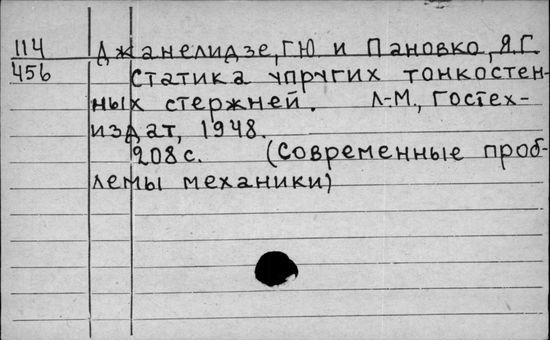 114 Джанелидзе, ГЮ и Пановко, Я.Г.
456 Статика упругих тонкостен-
ных стержней. Л-М., Гостех-
издат, 1948.
208 с. (Современные проб-
лемы механики)